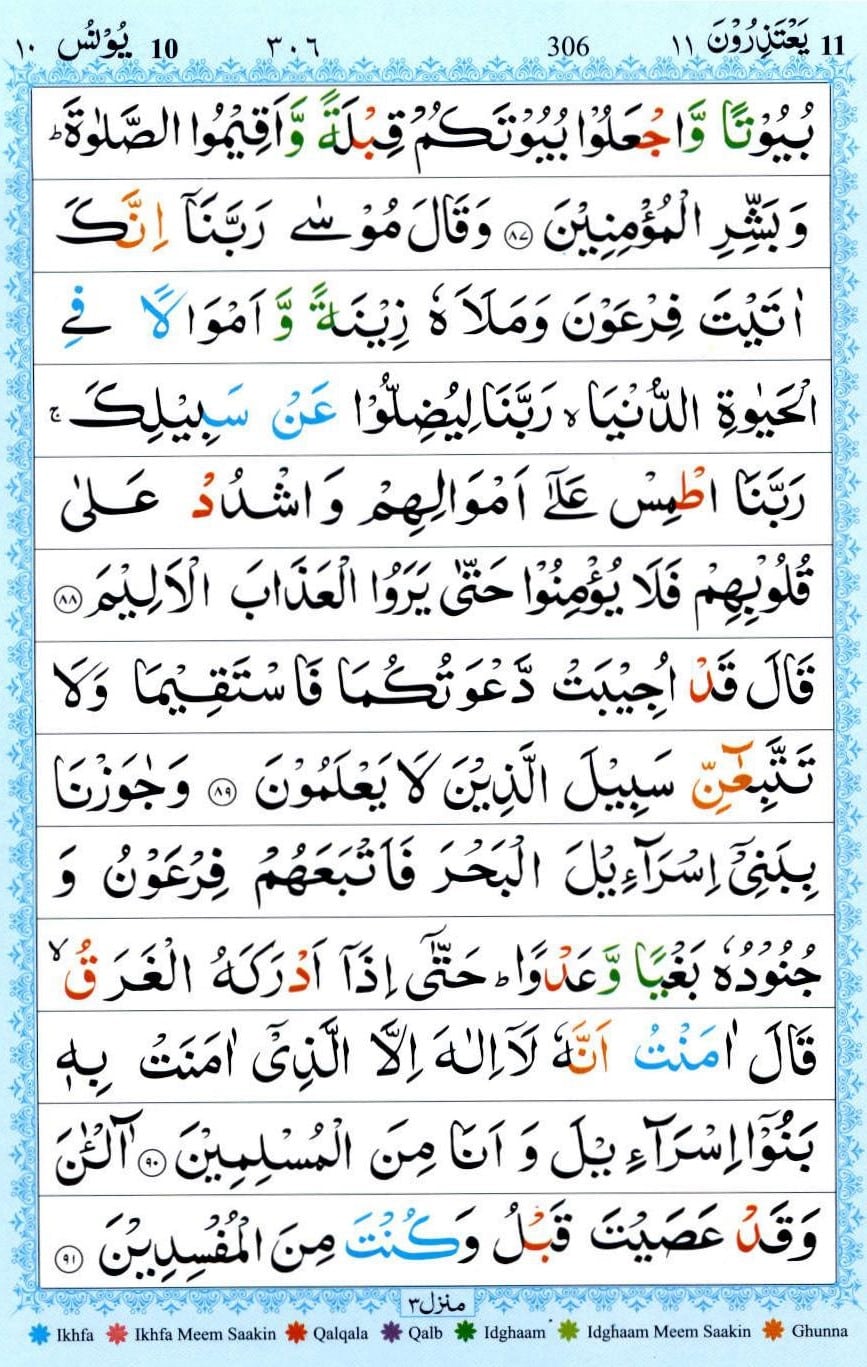 11 يَعْتَذِرُوْنَ ١١ 306 ٣٠٦ 10 يُوْنُسُ ١٠
بُيُوْتًا وَّاجْعَلُوْا بُيُوْتَكُمْ قِبْلَةً وَّاَقِيْمُوا الصَّلٰوةَ ؕ
وَبَشِّرِ الْمُؤْمِنِيْنَ ۝٨٧ وَقَالَ مُوْسٰى رَبَّنَاۤ اِنَّكَ
اٰتَيْتَ فِرْعَوْنَ وَمَلَاَهٗ زِيْنَةً وَّاَمْوَالًا فِي
الْحَيٰوةِ الدُّنْيَا ۙ رَبَّنَا لِيُضِلُّوْا عَنْ سَبِيْلِكَ ۚ
رَبَّنَا اطْمِسْ عَلٰۤى اَمْوَالِهِمْ وَاشْدُدْ عَلٰى
قُلُوْبِهِمْ فَلَا يُؤْمِنُوْا حَتّٰى يَرَوُا الْعَذَابَ الْاَلِيْمَ ۝٨٨
قَالَ قَدْ اُجِيْبَتْ دَّعْوَتُكُمَا فَاسْتَقِيْمَا وَلَا
تَتَّبِعٰٓنِّ سَبِيْلَ الَّذِيْنَ لَا يَعْلَمُوْنَ ۝٨٩ وَجٰوَزْنَا
بِبَنِيْۤ اِسْرَآءِيْلَ الْبَحْرَ فَاَتْبَعَهُمْ فِرْعَوْنُ وَ
جُنُوْدُهٗ بَغْيًا وَّعَدْوًا ؕ حَتّٰۤى اِذَاۤ اَدْرَكَهُ الْغَرَقُ ۙ
قَالَ اٰمَنْتُ اَنَّهٗ لَاۤ اِلٰهَ اِلَّا الَّذِيْۤ اٰمَنَتْ بِهٖ
بَنُوْۤا اِسْرَآءِيْلَ وَ اَنَا مِنَ الْمُسْلِمِيْنَ ۝٩٠ آٰلْـٰٔنَ
وَقَدْ عَصَيْتَ قَبْلُ وَكُنْتَ مِنَ الْمُفْسِدِيْنَ ۝٩١
منزل ٣
Ikhfa Ikhfa Meem Saakin Qalqala Qalb Idghaam Idghaam Meem Saakin Ghunna